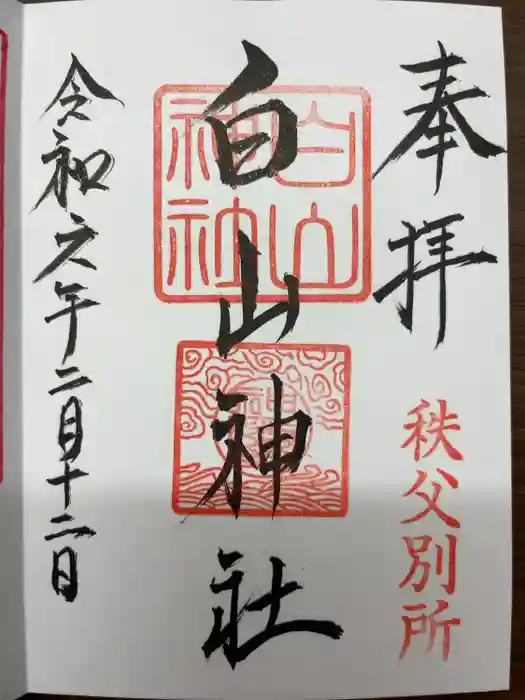 奉拝
秩父別所
白山神社
白山
神社
令和六年二月十二日